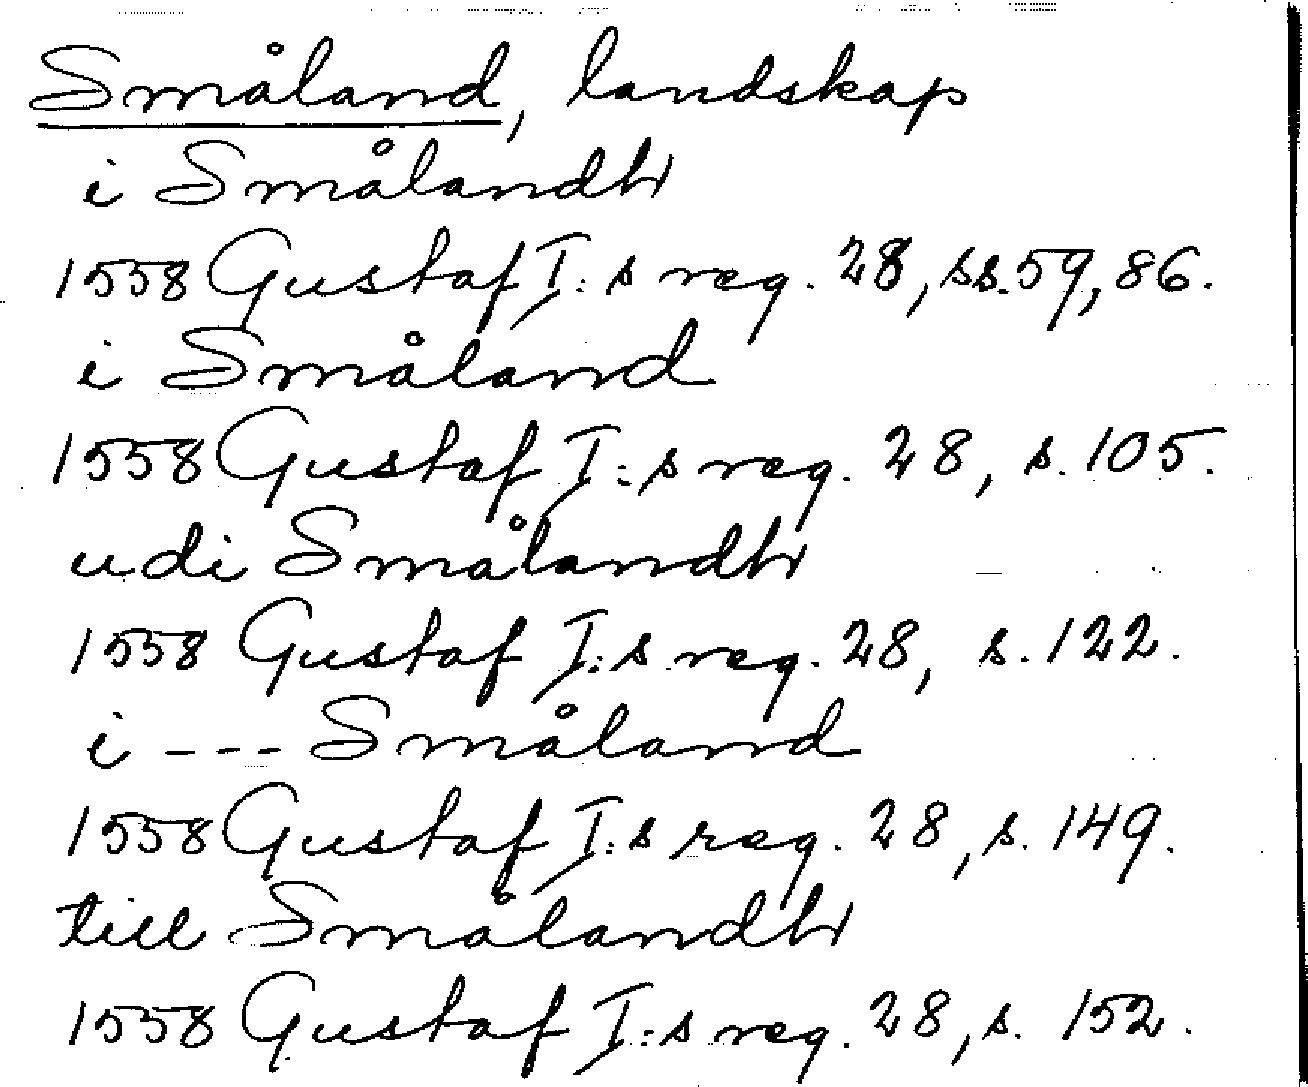 Småland, landskap
i Smålandh
1558 Gustaf I:s reg. 28, ss. 59, 86.
i Småland
1558 Gustaf I:s reg. 28, s. 105.
udi Smålandh
1558 Gustaf I:s reg. 28, s. 122.
i --- Småland
1558 Gustaf I:s reg. 28, s. 149.
till Smålandh
1558 Gustaf I:s reg. 28, s. 152.